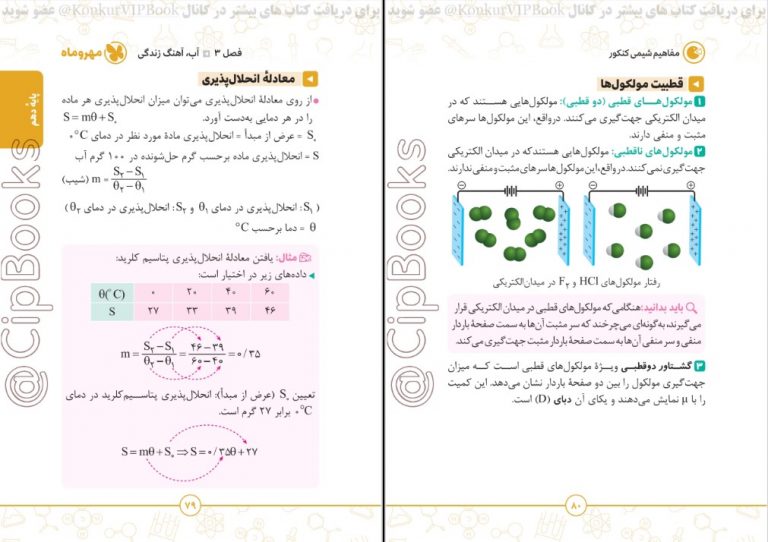 برای دریافت کتاب های بیشتر در کانال KonkurVIPBook@ عضو شوید
مفاهیم شیمی کنکور
قطبیت مولکول‌ها
۱ مولکول‌هــای قطبی (دو قطبی): مولکول‌هایی هستند که در
میدان الکتریکی جهت‌گیری می‌کنند. درواقع، این مولکول‌ها سرهای
مثبت و منفی دارند.
۲ مولکول‌های ناقطبی: مولکول‌هایی هستندکه در میدان الکتریکی
جهت‌گیری نمی‌کنند. درواقع، این مولکول‌ها سرهای مثبت و منفی ندارند.
− +
− +
رفتار مولکول‌های HCl و F۲ در میدان‌الکتریکی
باید بدانید: هنگامی‌که مولکول‌های قطبی در میدان الکتریکی قرار
می‌گیرند، به‌گونه‌ای می‌چرخند که سر مثبت آن‌ها به سمت صفحهٔ باردار
منفی و سر منفی آن‌ها به سمت صفحهٔ باردار مثبت جهت‌گیری می‌کند.
۳ گشــتاور دوقطبــی ویــژهٔ مولکول‌های قطبی اســت کــه میزان
جهت‌گیری مولکول را بین دو صفحهٔ باردار نشان می‌دهد. این کمیت
را با μ نمایش می‌دهند و یکای آن دبای (D) است.
۸۰
@CipBooks
برای دریافت کتاب های بیشتر در کانال KonkurVIPBook@ عضو شوید
فصل ۳ آب، آهنگ زندگی
مهروماه
پایهٔ دهم
معادلهٔ انحلال‌پذیری
از روی معادلهٔ انحلال‌پذیری می‌توان میزان انحلال‌پذیری هر ماده
را در هر دمایی به‌دست آورد. S = mθ + S۰
S۰ = عرض از مبدأ = انحلال‌پذیری مادهٔ مورد نظر در دمای ۰°C
S = انحلال‌پذیری ماده برحسب گرم حل‌شونده در ۱۰۰ گرم آب
(شیب) m = (S۲ − S۱)/(θ۲ − θ۱)
(S۱: انحلال‌پذیری در دمای θ۱ و S۲: انحلال‌پذیری در دمای θ۲)
θ = دما برحسب °C
مثال: یافتن معادلهٔ انحلال‌پذیری پتاسیم کلرید:
داده‌های زیر در اختیار است:
θ(°C) ۰ ۲۰ ۴۰ ۶۰
S ۲۷ ۳۳ ۳۹ ۴۶
m = (S۲ − S۱)/(θ۲ − θ۱) = (۴۶ − ۳۹)/(۶۰ − ۴۰) = ۰/۳۵
تعیین S۰ (عرض از مبدأ): انحلال‌پذیری پتاســیم‌کلرید در دمای
۰°C برابر ۲۷ گرم است.
S = mθ + S۰ ⇒ S = ۰/۳۵θ + ۲۷
۷۹
@CipBooks